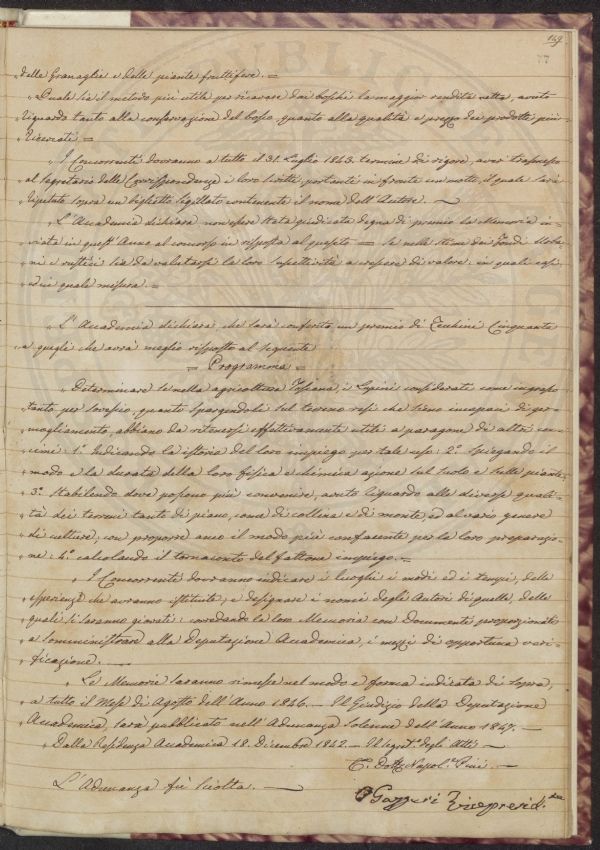 149
77
„ delle Granaglie e delle piante fruttifere. =
„ Quale sia il metodo più utile per ricavare dai boschi la maggior rendita netta, avuto
„ riguardo tanto alla conservazione del bosco, quanto alla qualità e prezzo dei prodotti più
„ ricercati =
„ I Concorrenti dovranno a tutto il 31. Luglio 1843. termine di rigore, aver trasmesso
„ al Segretario delle Corrispondenze i loro scritti, portanti in fronte un motto, il quale sarà
„ ripetuto sopra un biglietto sigillato contenente il nome dell'Autore. ~
„ L'Accademia dichiara non essere stata giudicata degna di premio la Memoria in-
„ viata in quest'Anno al concorso in risposta al quesito = Se nelle stime dei Fondi Urba-
„ ni e rustici sia da valutarsi la loro suscettività a crescere di valore: in quali casi
„ ed in quale misura. =
„ L'Accademia dichiara che sarà conferito un premio di Zecchini Cinquanta
„ a quegli che avrà meglio risposto al seguente
= Programma =
„ Determinare se nella agricoltura Toscana, i Lupini considerati come ingrasso
„ tanto per sovescio, quanto spargendoli sul terreno resi che sieno incapaci di ger-
„ mogliamento, abbiano da ritenersi effettivamente utili a paragone di altri con-
„ cimi: 1.° Indicando la istoria del loro impiego per tale uso: 2.° Spiegando il
„ modo e la durata della loro fisica e chimica azione sul suolo e sulle piante:
„ 3.° Stabilendo dove possono più convenire, avuto riguardo alle diverse quali-
„ tà dei terreni tanto di piano, come di collina e di monte, ed al vario genere
„ di culture, con proporre anco il modo più confacente per la loro preparazio-
„ ne: 4.° calcolando il tornaconto del fattone impiego. =
„ I Concorrenti dovranno indicare i luoghi i modi ed i tempi, delle
„ esperienze che avranno istituite, e designare i nomi degli Autori di quelle, delle
„ quali si saranno giovati: corredando la loro Memoria con Documenti proporzionati
„ a somministrare alla Deputazione Accademica, i mezzi di opportuna veri-
„ ficazione. —
„ Le Memorie saranno rimesse nel modo e forma indicata di sopra,
„ a tutto il Mese di Agosto dell'Anno 1846. — Il Giudizio della Deputazione
„ Accademica, sarà pubblicato nell'Adunanza Solenne dell'Anno 1847. —
„ Dalla Residenza Accademica 18. Dicembre 1842. — Il Segret.° degli Atti —
C. Dott. Napol.e Pini. —
L'Adunanza fù sciolta. —
Gazzeri Vicepresid.te